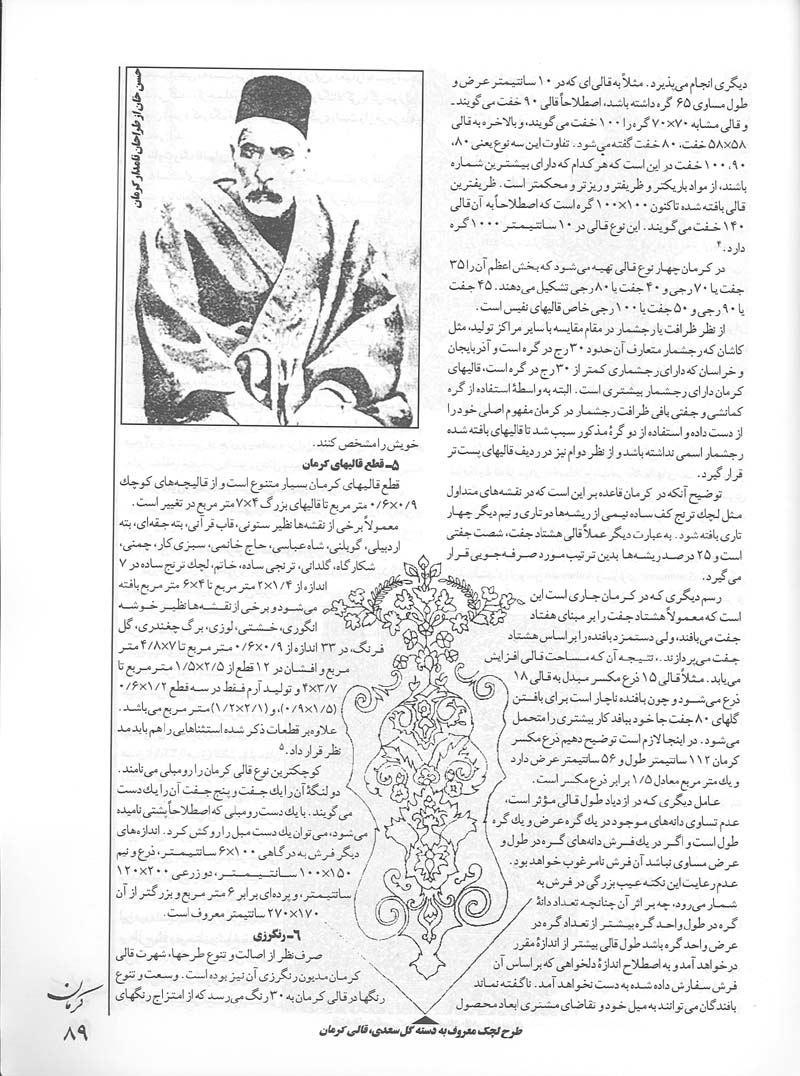 دیگری انجام می‌پذیرد. مثلاً به قالی‌ای که در ۱۰ سانتیمتر عرض و
طول مساوی ۶۵ گره داشته باشد، اصطلاحاً قالی ۹۰ خفت می‌گویند ـ
و قالی مشابه ۷۰×۷۰ گره را ۱۰۰ خفت می‌گویند، و بالاخره به قالی
۵۸×۵۸ خفت، ۸۰ خفت گفته می‌شود. تفاوت این سه نوع یعنی ۸۰،
۹۰، ۱۰۰ خفت در این است که هر کدام که دارای بیشترین شماره
باشند، از مواد باریکتر و ظریفتر و ریزتر و محکمتر است. ظریفترین
قالی بافته شده تاکنون ۱۰۰×۱۰۰ گره است که اصطلاحاً به آن قالی
۱۴۰ خفت می‌گویند. این نوع قالی در ۱۰ سانتیمتر ۱۰۰۰ گره
دارد.۴
در کرمان چهار نوع قالی تهیه می‌شود که بخش اعظم آن را ۳۵
جفت یا ۷۰ رجی و ۴۰ جفت یا ۸۰ رجی تشکیل می‌دهند. ۴۵ جفت
یا ۹۰ رجی و ۵۰ جفت یا ۱۰۰ رجی خاص قالیهای نفیس است.
از نظر ظرافت یا رجشمار در مقام مقایسه با سایر مراکز تولید، مثل
کاشان که رجشمار متعارف آن حدود ۳۰ رج در گره است و آذربایجان
و خراسان که دارای رجشماری کمتر از ۳۰ رج در گره است، قالیهای
کرمان دارای رجشمار بیشتری است. البته به واسطهٔ استفاده از گره
کمانشی و جفتی بافی ظرافت رجشمار در کرمان مفهوم اصلی خود را
از دست داده و استفاده از دو گرهٔ مذکور سبب شد تا قالیهای بافته شده
رجشمار اسمی نداشته باشد و از نظر دوام نیز در ردیف قالیهای پست تر
قرار گیرد.
توضیح آنکه در کرمان قاعده بر این است که در نقشه‌های متداول
مثل لچک ترنج کف ساده نیمی از ریشه‌ها دو تاری و نیم دیگر چهار
تاری بافته شود. به عبارت دیگر عملاً قالی هشتاد جفت، شصت جفتی
است و ۲۵ درصد ریشه‌ها بدین ترتیب مورد صرفه‌جویی قرار
می‌گیرد.
رسم دیگری که در کرمان جاری است این
است که معمولاً هشتاد جفت را بر مبنای هفتاد
جفت می‌بافند، ولی دستمزد بافنده را بر اساس هشتاد
جفت می‌پردازند.، نتیجه آن که مساحت قالی افزایش
می‌یابد. مثلاً قالی ۱۵ ذرع مکسر مبدل به قالی ۱۸
ذرع می‌شود و چون بافنده ناچار است برای بافتن
گلهای ۸۰ جفت جا خود بیافد کار بیشتری را متحمل
می‌شود. در اینجا لازم است توضیح دهیم ذرع مکسر
کرمان ۱۱۲ سانتیمتر طول و ۵۶ سانتیمتر عرض دارد
و یک متر مربع معادل ۱/۵ برابر ذرع مکسر است.
عامل دیگری که در ازدیاد طول قالی مؤثر است،
عدم تساوی دانه‌های موجود در یک گره عرض و یک گره
طول است و اگر در یک فرش دانه‌های گره در طول و
عرض مساوی نباشد آن فرش نامرغوب خواهد بود.
عدم رعایت این نکته عیب بزرگی در فرش به
شمار می‌رود، چه بر اثر آن چنانچه تعداد دانهٔ
گره در طول واحد گره بیشتر از تعداد گره در
عرض واحد گره باشد طول قالی بیشتر از اندازهٔ مقرر
در خواهد آمد و به اصطلاح اندازهٔ دلخواهی که بر اساس آن
فرش سفارش داده شده به دست نخواهد آمد. ناگفته نماند
بافندگان می‌توانند به میل خود و تقاضای مشتری ابعاد محصول
حسن خان از طراحان نامدار کرمان
خویش را مشخص کنند.
۵ـ قطع قالیهای کرمان
قطع قالیهای کرمان بسیار متنوع است و از قالیچه‌های کوچک
۰/۶×۰/۹ متر مربع تا قالیهای بزرگ ۴×۷ متر مربع در تغییر است.
معمولاً برخی از نقشه‌ها نظیر ستونی، قاب قرآنی، بته جقه‌ای، پته
اردبیلی، گوبلنی، شاه عباسی، حاج خانمی، سبزی کار، چمنی،
شکارگاه، گلدانی، ترنجی ساده، خاتم، لچک ترنج ساده در ۷
اندازه از ۱/۴×۲ متر مربع تا ۴×۶ متر مربع بافته
می‌شود و برخی از نقشه‌ها نظیر خوشه
انگوری، خشتی، لوزی، برگ چغندری، گل
فرنگ، در ۳۳ اندازه از ۰/۶×۰/۹ متر مربع تا ۴/۸×۷ متر
مربع و افشان در ۱۲ قطع از ۱/۵×۲/۵ متر مربع تا
۴×۳/۷ و تولید آرم فقط در سه قطع ۰/۶×۱/۲
(۰/۹×۱/۵)، و (۱/۲×۲/۱) متر مربع می‌باشد.
علاوه بر قطعات ذکر شده استثناهایی را هم باید مد
نظر قرار داد.۵
کوچکترین نوع قالی کرمان را رومبلی می‌نامند.
دو لنگهٔ آن را یک جفت و پنج جفت آن را یک دست
می‌گویند. با یک دست رومبلی که اصطلاحاً پشتی نامیده
می‌شود، می‌توان یک دست مبل را روکش کرد. اندازه‌های
دیگر فرش به درگاهی ۱۰۰×۶ سانتیمتر، ذرع و نیم
۱۵۰×۱۰۰ سانتیمتر، دو زرعی ۲۰۰×۱۲۰
سانتیمتر، و پرده‌ای برابر ۶ متر مربع و بزرگتر از آن
۱۷۰×۲۷۰ سانتیمتر معروف است.
۶ـ رنگرزی
صرف نظر از اصالت و تنوع طرحها، شهرت قالی
کرمان مدیون رنگرزی آن نیز بوده است. وسعت و تنوع
رنگها در قالی کرمان به ۳۰ رنگ می‌رسد که از امتزاج رنگهای
طرح لچک معروف به دسته گل سعدی، قالی کرمان
کرمان
۸۹